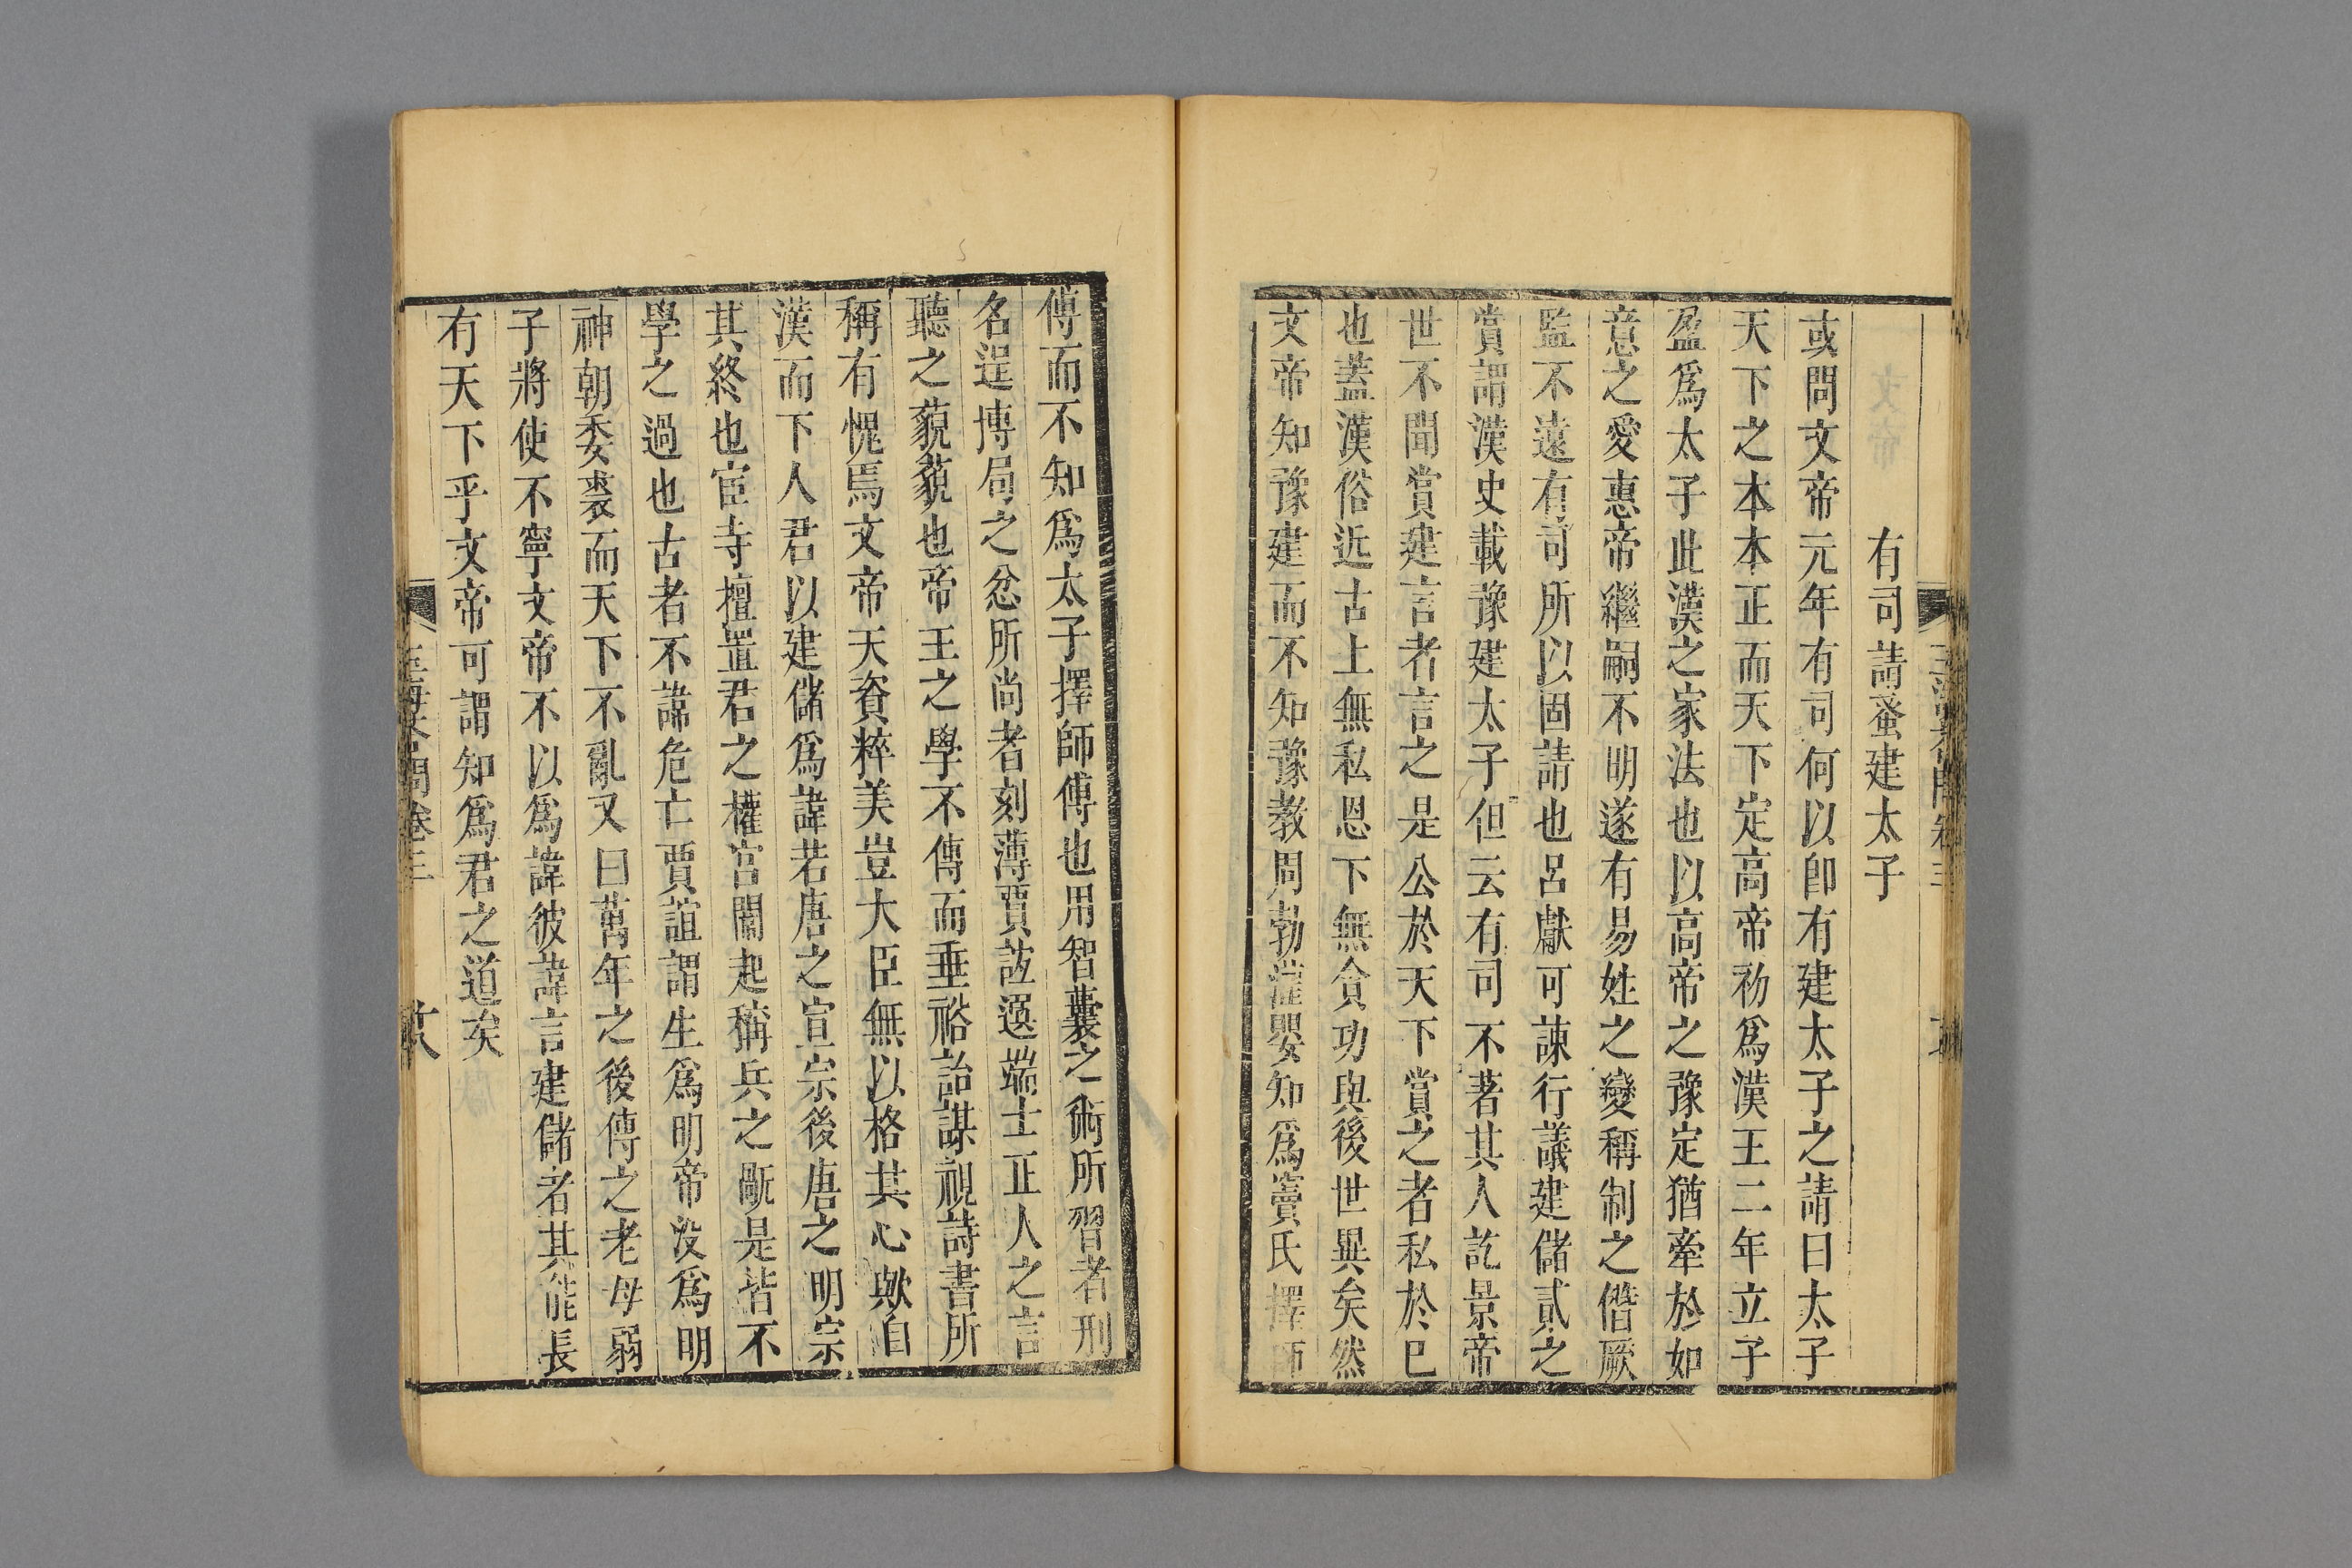 有司請蚤建太子
或問文帝元年有司何以卽有建太子之請曰太子
天下之本本正而天下定高帝初爲漢王二年立子
盈爲太子此漢之家法也以高帝之豫定猶牽於如
意之愛惠帝繼嗣不明遂有易姓之變稱制之僭厥
監不遠有司所以固請也呂獻可諫行議建儲貳之
賞謂漢史載豫建太子但云有司不著其人訖景帝
世不聞賞建言者言之是公於天下賞之者私於已
也蓋漢俗近古上無私恩下無貪功與後世異矣然
文帝知豫建而不知豫教周勃灌嬰知爲竇氏擇師
傅而不知爲太子擇師傅也用智囊之術所習者刑
名逞博局之忿所尚者刻薄賈誼遠端士正人之言
聽之藐藐也帝王之學不傳而垂裕詒謀視詩書所
稱有愧焉文帝天資粹美豈大臣無以格其心歟自
漢而下人君以建儲爲諱若唐之宣宗後唐之明宗
其終也宦寺擅置君之權宮闈起稱兵之
是皆不
學之過也古者不諱危亡賈誼謂生爲明帝没爲明
神朝委裘而天下不亂又曰萬年之後傳之老母弱
子將使不寧文帝不以爲諱彼諱言建儲者其能長
有天下乎文帝可謂知爲君之道矣